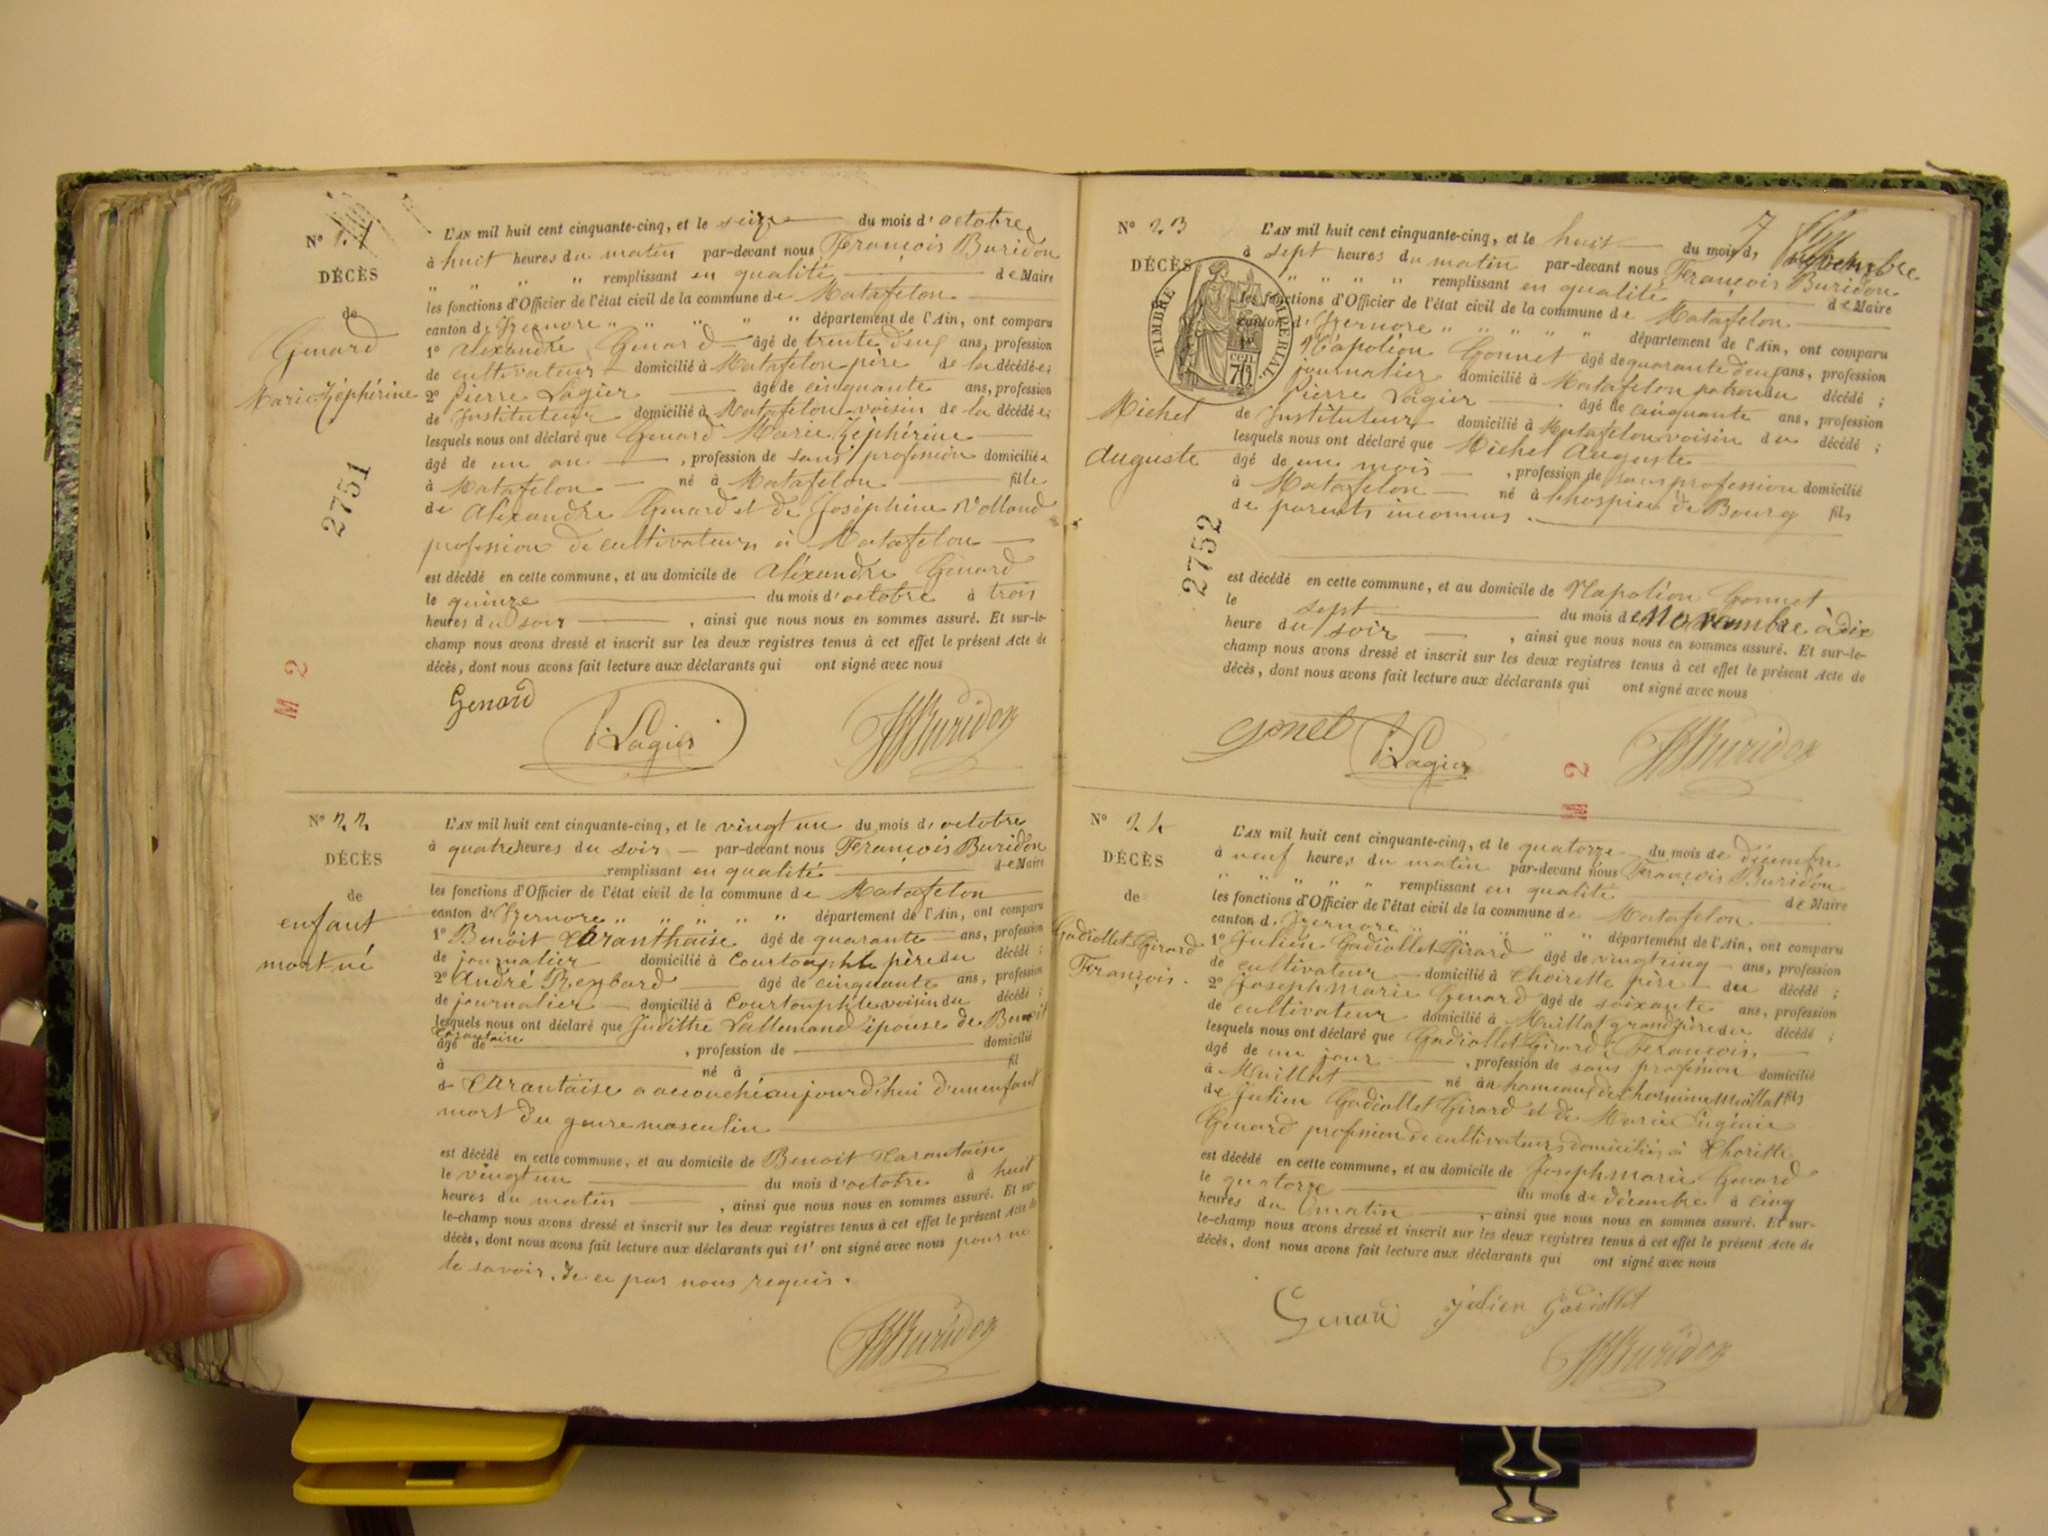 L'AN mil huit cent cinquante-cinq, et le seize du mois d'octobre
N°
à huit heures du matin par-devant nous François Buridon
DÉCÈS
remplissant en qualité de Maire
les fonctions d'Officier de l'état civil de la commune de Matafelon
de
canton d'Izernore " " " " " département de l'Ain, ont comparu
Genard
1° Alexandre Genard âgé de trente deux ans, profession
de cultivateur domicilié à Matafelon père de la décédée;
Marie Zéphérine
2° Pierre Lagier âgé de cinquante ans, profession
de Instituteur domicilié à Matafelon voisin de la décédée;
lesquels nous ont déclaré que Genard Marie Zéphérine
âgé de un an , profession de sans profession domiciliée
2751
à Matafelon né à Matafelon fille
de Alexandre Genard et de Joséphine Volland
profession de cultivateurs à Matafelon
est décédé en cette commune, et au domicile de Aléxandre Genard
le quinze du mois d'octobre à trois
heures du soir , ainsi que nous nous en sommes assuré. Et sur-le-
champ nous avons dressé et inscrit sur les deux registres tenus à cet effet le présent Acte de
décès, dont nous avons fait lecture aux déclarants qui ont signé avec nous
M 2
Genard P. Lagier Buridon
N° 22
L'AN mil huit cent cinquante-cinq, et le vingt un du mois d'octobre
à quatre heures du soir par-devant nous François Buridon
DÉCÈS
remplissant en qualité de Maire
les fonctions d'Officier de l'état civil de la commune de Matafelon
de
canton d'Izernore " " " " " département de l'Ain, ont comparu
enfant
1° Benoit Taranthaise âgé de quarante ans, profession
mort né
de journalier domicilié à Courtouphle père du décédé;
2° André Reybard âgé de cinquante ans, profession
de journalier domicilié à Courtouphle voisin du décédé;
lesquels nous ont déclaré que Judithe Lallemand épouse de Benoit
Tarantaise
âgé de , profession de domicilié
à né à fil
d Tarantaise a accouché aujourd'hui d'un enfant
mort du genre masculin
est décédé en cette commune, et au domicile de Benoit Tarantaise
le vingt un du mois d'octobre à huit
heures du matin , ainsi que nous nous en sommes assuré. Et sur-
le-champ nous avons dressé et inscrit sur les deux registres tenus à cet effet le présent Acte de
décès, dont nous avons fait lecture aux déclarants qui n' ont signé avec nous pour ne
le savoir, de ce par nous requis.
Buridon
7
N° 23
L'AN mil huit cent cinquante-cinq, et le huit du mois d
à sept heures du matin par-devant nous François Buridon
DÉCÈS
" " " " remplissant en qualité de Maire
TIMBRE IMPÉRIAL
cen
les fonctions d'Officier de l'état civil de la commune de Matafelon
canton d'Izernore " " " " " département de l'Ain, ont comparu
Napoléon Gonnet âgé de quarante deux ans, profession
journalier domicilié à Matafelon patron du décédé;
Pierre Lagier âgé de cinquante ans, profession
Michel
de Instituteur domicilié à Matafelon voisin du décédé;
lesquels nous ont déclaré que Michel Auguste
Auguste
âgé de un mois , profession de sans profession domicilié
à Matafelon né à l'hospice de Bourg fils
de parents inconnus.
2752
est décédé en cette commune, et au domicile de Napoléon Gonnet
le sept du mois de Novembre à dix
heure du soir , ainsi que nous nous en sommes assuré. Et sur-le-
champ nous avons dressé et inscrit sur les deux registres tenus à cet effet le présent Acte de
décès, dont nous avons fait lecture aux déclarants qui ont signé avec nous
gonet P. Lagier Buridon
M 2
N° 24
L'AN mil huit cent cinquante-cinq, et le quatorze du mois de décembre
à neuf heures du matin par-devant nous François Buridon
DÉCÈS
" " " " " remplissant en qualité de Maire
les fonctions d'Officier de l'état civil de la commune de Matafelon
de
canton d'Izernore " " " département de l'Ain, ont comparu
Gadiollet Girard
1° Julien Gadiollet Girard âgé de vingt cinq ans, profession
François.
de cultivateur domicilié à Thoirette père du décédé;
2° Joseph marie Genard âgé de soixante ans, profession
de cultivateur domicilié à Muillat grand père du décédé;
lesquels nous ont déclaré que Gadiollet Girard François
âgé de un jour , profession de sans profession domicilié
à Muillat né au hameau de fils
de Julien Gadiollet Girard et de Marie Eugénie
Genard profession de cultivateurs domiciliés à Thorette
est décédé en cette commune, et au domicile de Joseph marie Genard
le quatorze du mois de décembre à cinq
heures du matin , ainsi que nous nous en sommes assuré. Et sur-
le-champ nous avons dressé et inscrit sur les deux registres tenus à cet effet le présent Acte de
décès, dont nous avons fait lecture aux déclarants qui ont signé avec nous
Genard julien Gadiollet
Buridon